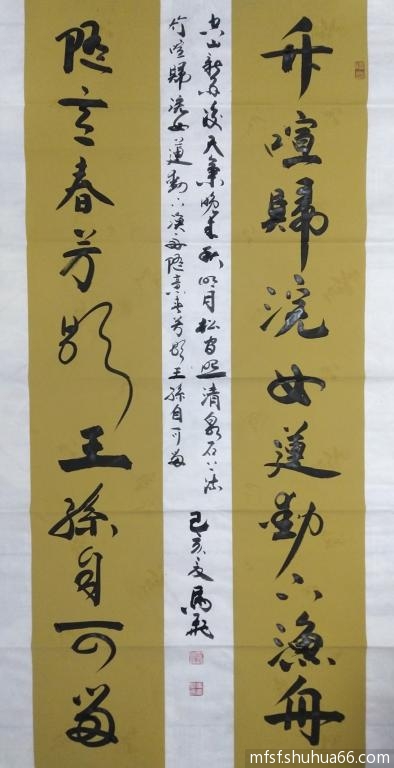 竹喧歸浣女蓮動下漁舟
空山新雨後天氣晚来秋明月松间照清泉石上流
竹喧歸浣女蓮動下漁舟随意春芳歇王孫自可留
己亥夏
随意春芳歇王孫自可留
mfsf.shuhua66.com